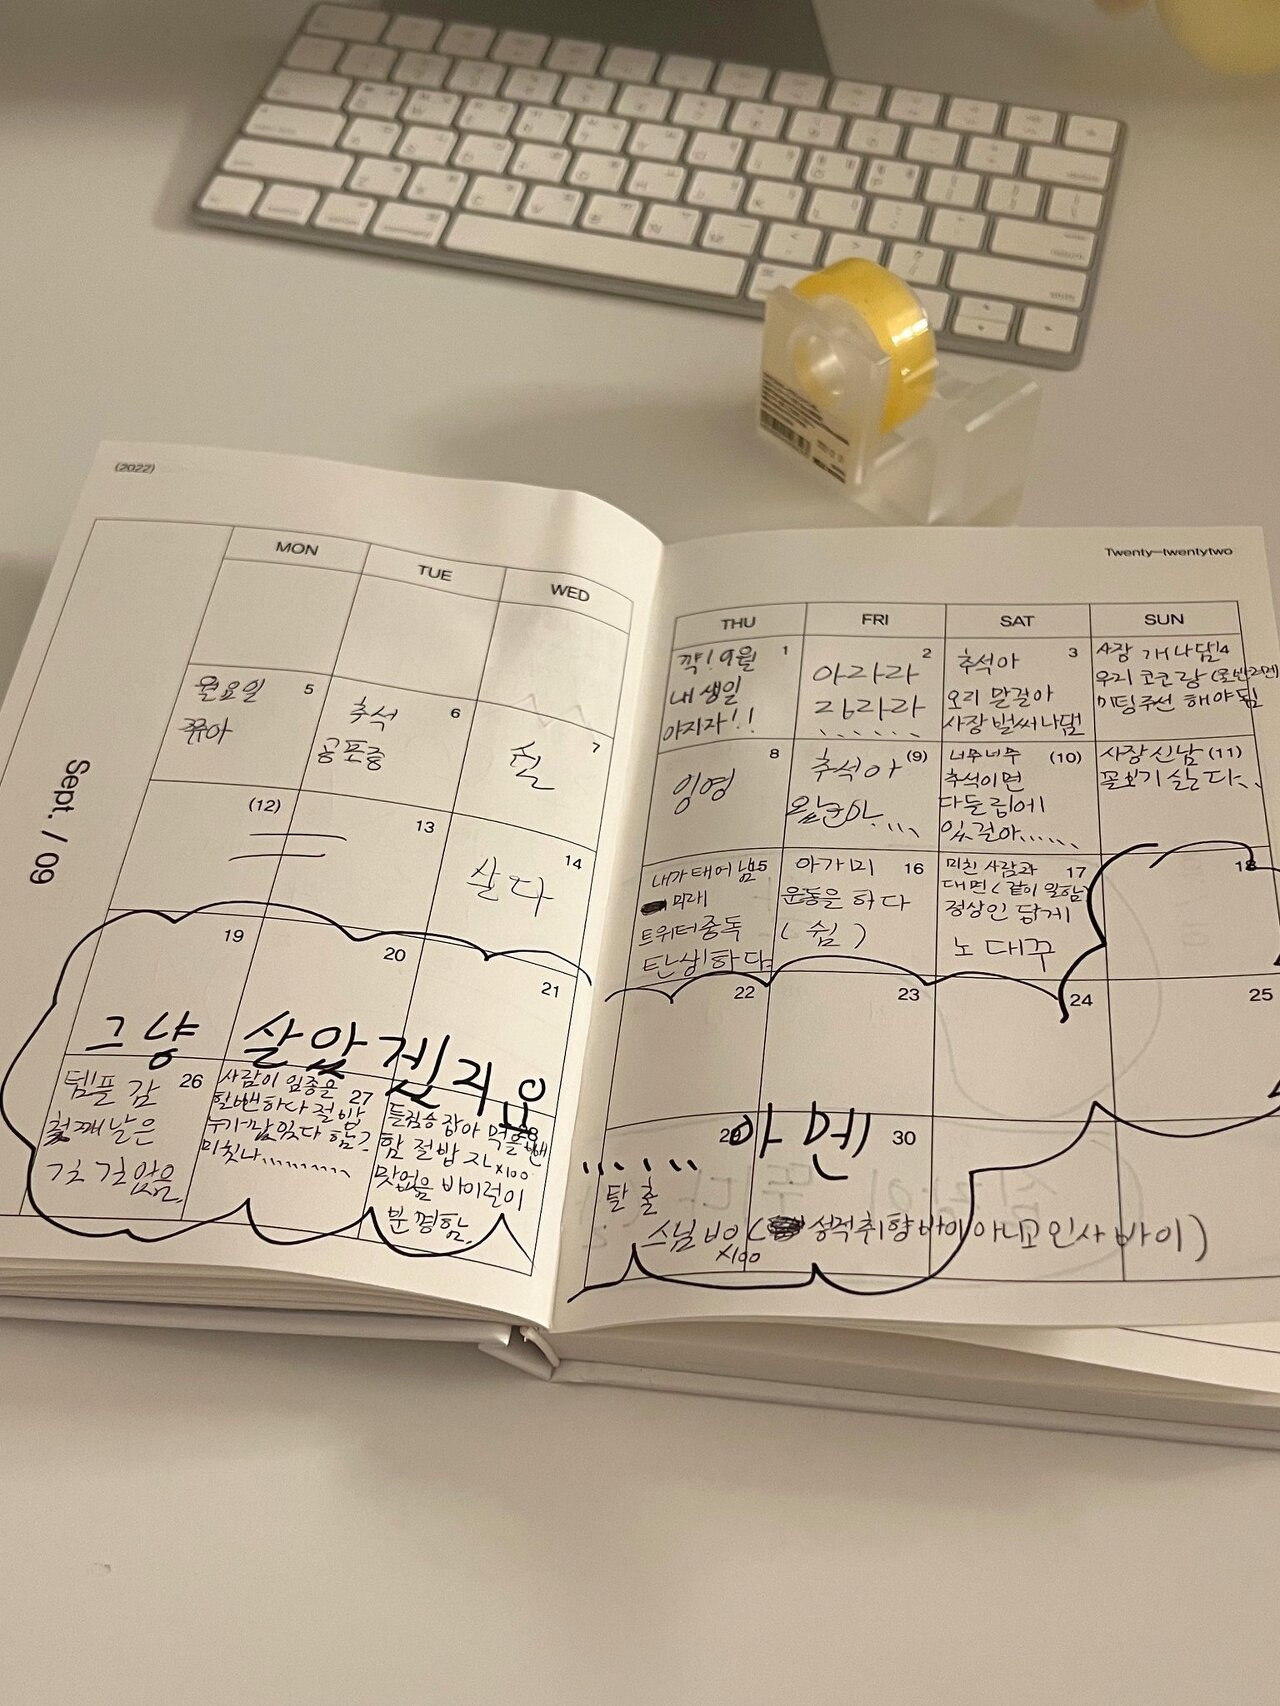 (2022)
Twenty-twentytwo
Sept. / 09
MON
TUE
WED
THU
FRI
SAT
SUN
1
꺅! 9월
내 생일
야지자!!
2
아라라
라라
3
추석아
오리 말걸아
사장 벌써 나댐
4
사장 개나댐
우리 코코랑
미팅주선 해야 됨
5
월요일
6
추석
공포증
7
8
잉영
(9)
추석아
(10)
너무너무
추석이면
다들 립에
있걸아......
(11)
사장 신남
꼴보기 싫다..
(12)
13
14
살다
내가 태어남
미래
트위터중독
탄생하다
16
아가미
운동을 하다
(쉼)
17
미친 사람과
대면 (같이 일함)
정상인 답게
노 대꾸
18
19
20
21
22
23
24
25
그냥 살았겠지요
26
템플 감
첫째날은
27
사람이 임종을
할뻔하다 절밥
누가 맛있다 함?
미칫나..........
들짐승 잡아 먹을뻔
함 절밥 x100
맛없음 바이럴이
분명함.
29
아멘
30
......
탈출
스님 x100 ( 성적취향바이 아니고 인사바이)